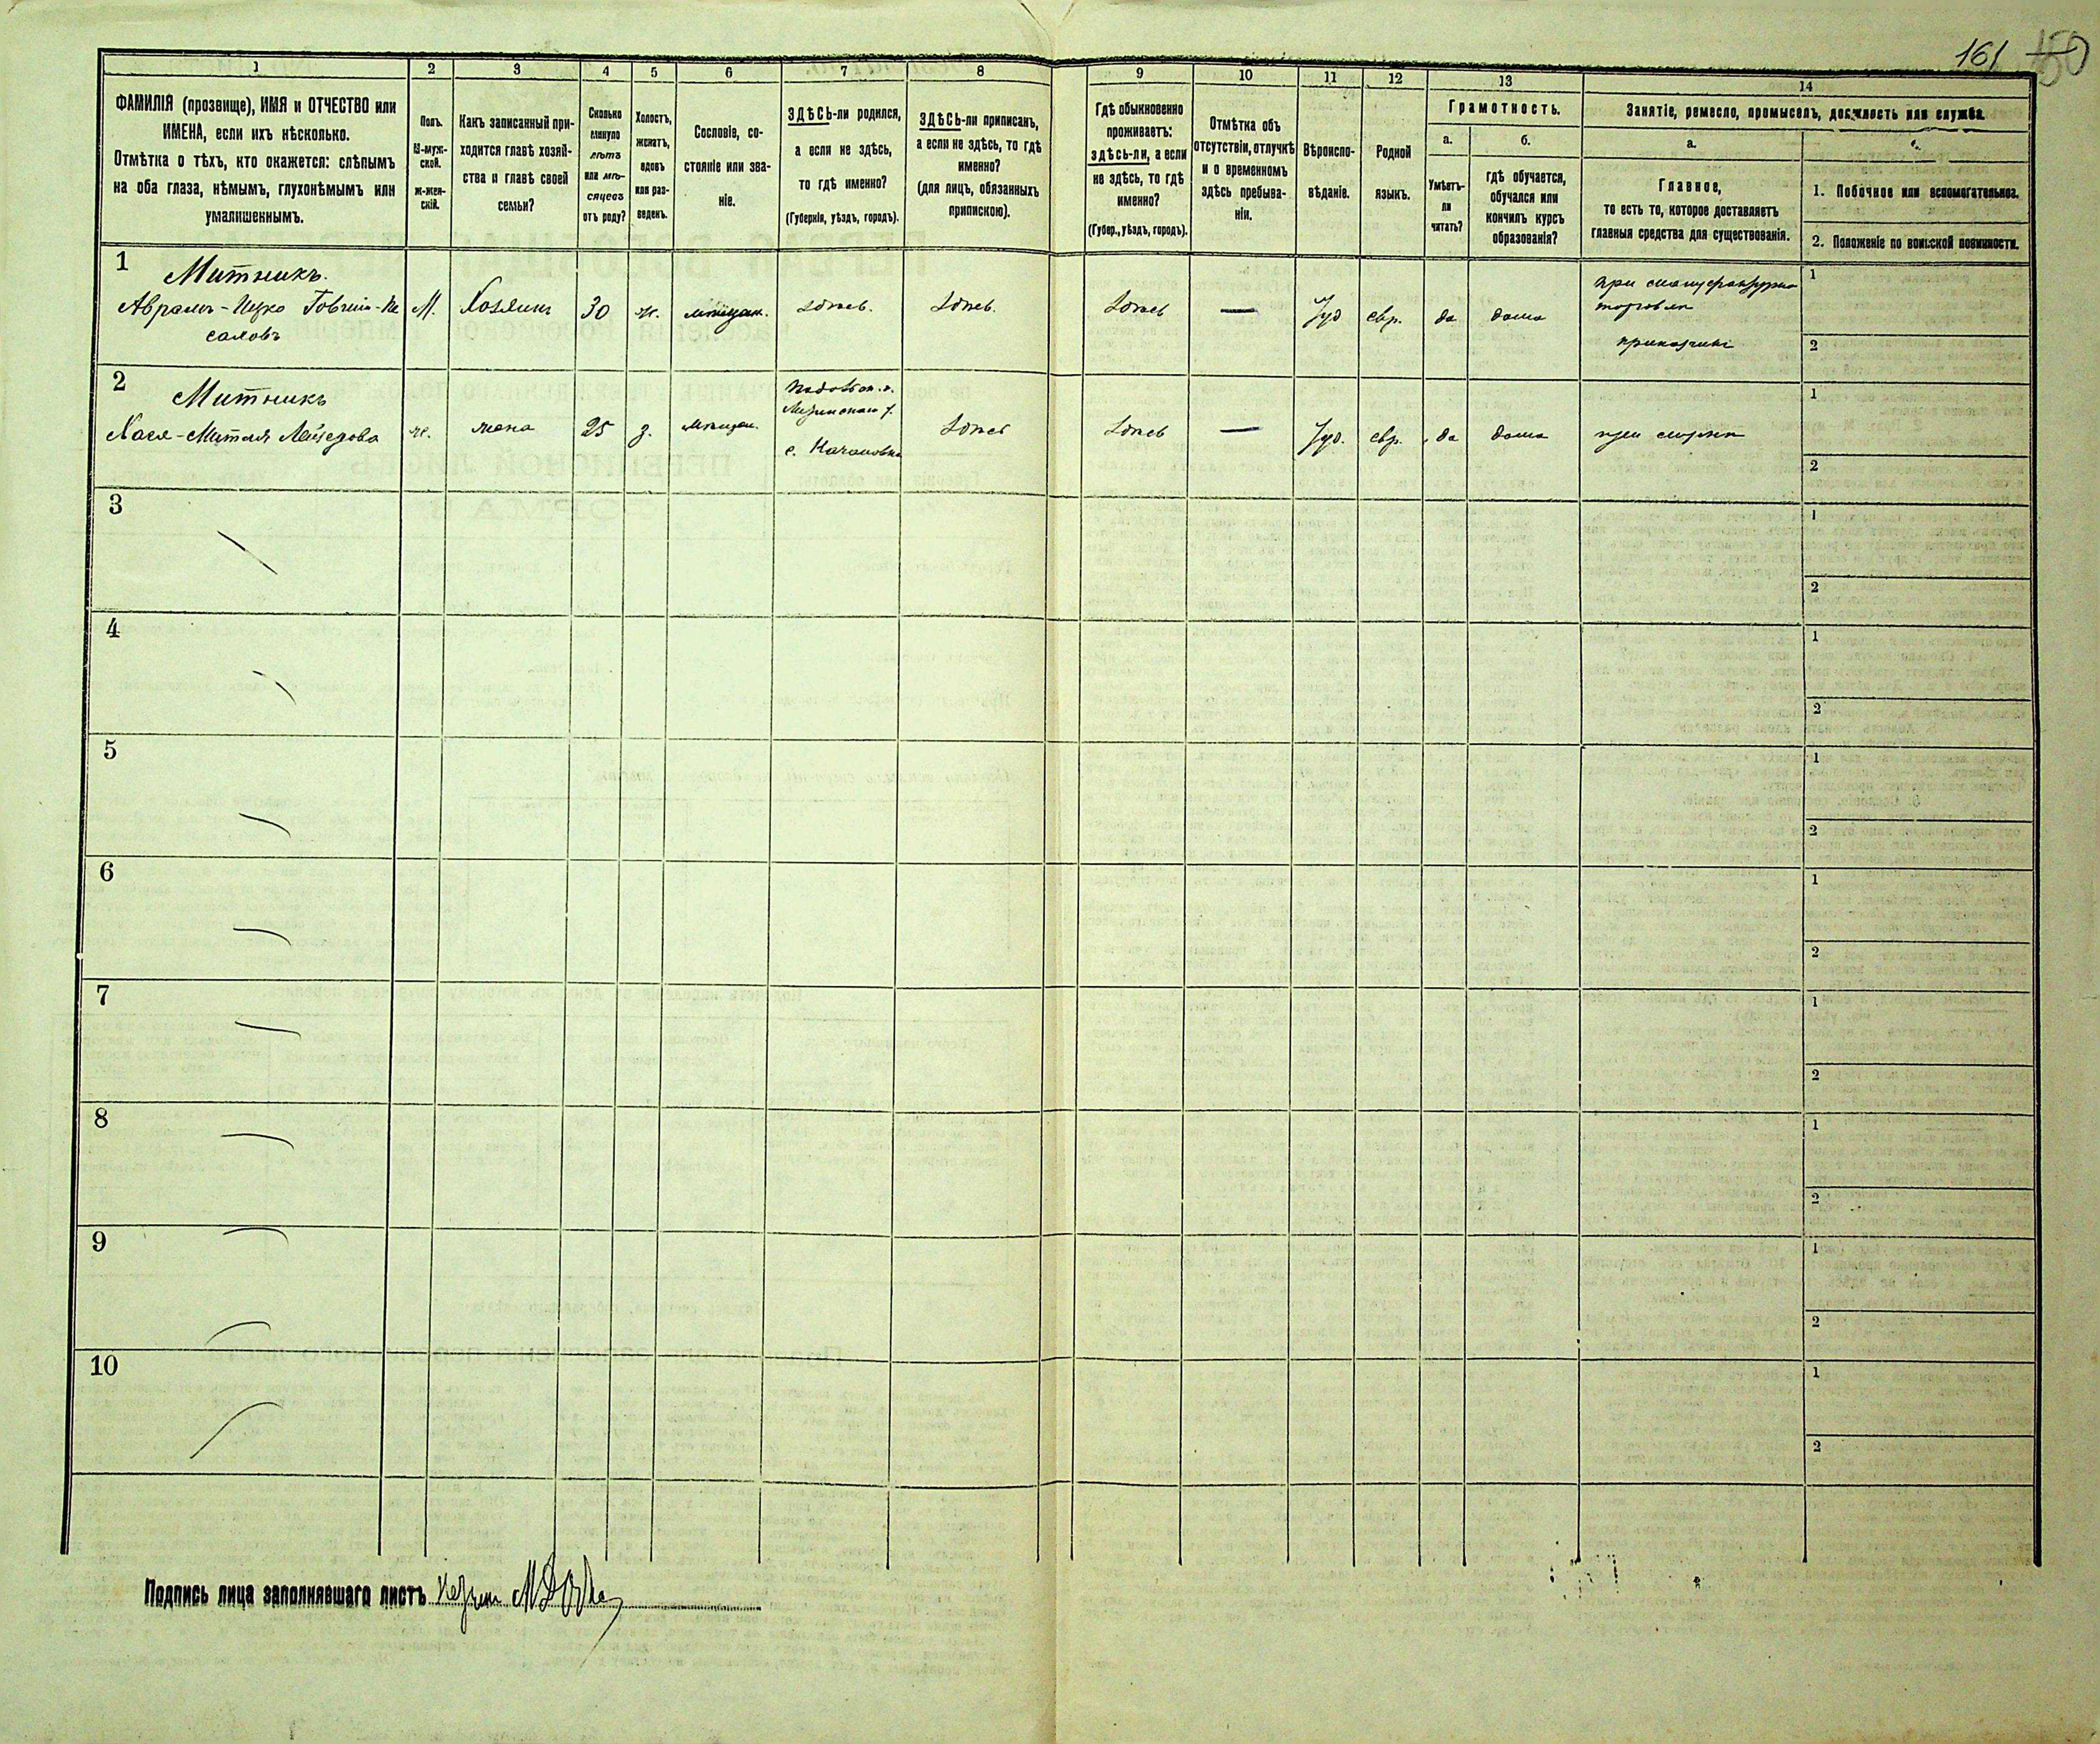 161 150
1 2 3 4 5 6 7 8 9 10 11 12 13 14
ФАМИЛІЯ (прозвище), ИМЯ и ОТЧЕСТВО или
ИМЕНА, если ихъ нѣсколько.
Отмѣтка о тѣхъ, кто окажется: слѣпымъ
на оба глаза, нѣмымъ, глухонѣмымъ или
умалишеннымъ.
Полъ.
М-муж-
ской.
ж-жен-
скій.
Какъ записанный при-
ходится главѣ хозяй-
ства и главѣ своей
семьи?
Сколько
минуло
лѣтъ
или мѣ-
сяцевъ
отъ роду?
Холостъ,
женатъ,
вдовъ
или раз-
веденъ.
Сословіе, со-
стояніе или зва-
ніе.
ЗДѢСЬ-ли родился,
а если не здѣсь,
то гдѣ именно?
(Губернія, уѣздъ, городъ).
ЗДѢСЬ-ли приписанъ,
а если не здѣсь, то гдѣ
именно?
(для лицъ, обязанныхъ
припискою).
Гдѣ обыкновенно
проживаетъ:
здѣсь-ли, а если
не здѣсь, то гдѣ
именно?
(Губер., уѣздъ, городъ).
Отмѣтка объ
отсутствіи, отлучкѣ
и о временномъ
здѣсь пребыва-
ніи.
Вѣроиспо-
вѣданіе.
Родной
языкъ.
Грамотность.
а.
Умѣетъ-
ли
читать?
б.
гдѣ обучается,
обучался или
кончилъ курсъ
образованія?
Занятіе, ремесло, промыселъ, должность или служба.
а.
Главное,
то есть то, которое доставляетъ
главныя средства для существованія.
1. Побочное или вспомогательное.
2. Положеніе по воинской повинности.
1
Митникъ.
Аврамъ-Ицко
саховъ
М. Хозяинъ 30 ж. мѣщан. здѣсь. здѣсь. здѣсь — Іуд евр. да дома
при мануфактурно
торговли
приказчикъ
1
2
2
Митникъ
Хася-
ж. жена 25 з. мѣщан.
Подольск. г.
с. Качановка
здѣсь здѣсь — Іуд. евр. да дома при мужѣ
1
2
3
1
2
4
1
2
5
1
2
6
1
2
7
1
2
8
1
2
9
1
2
10
1
2
Подпись лица заполнявшаго листъ